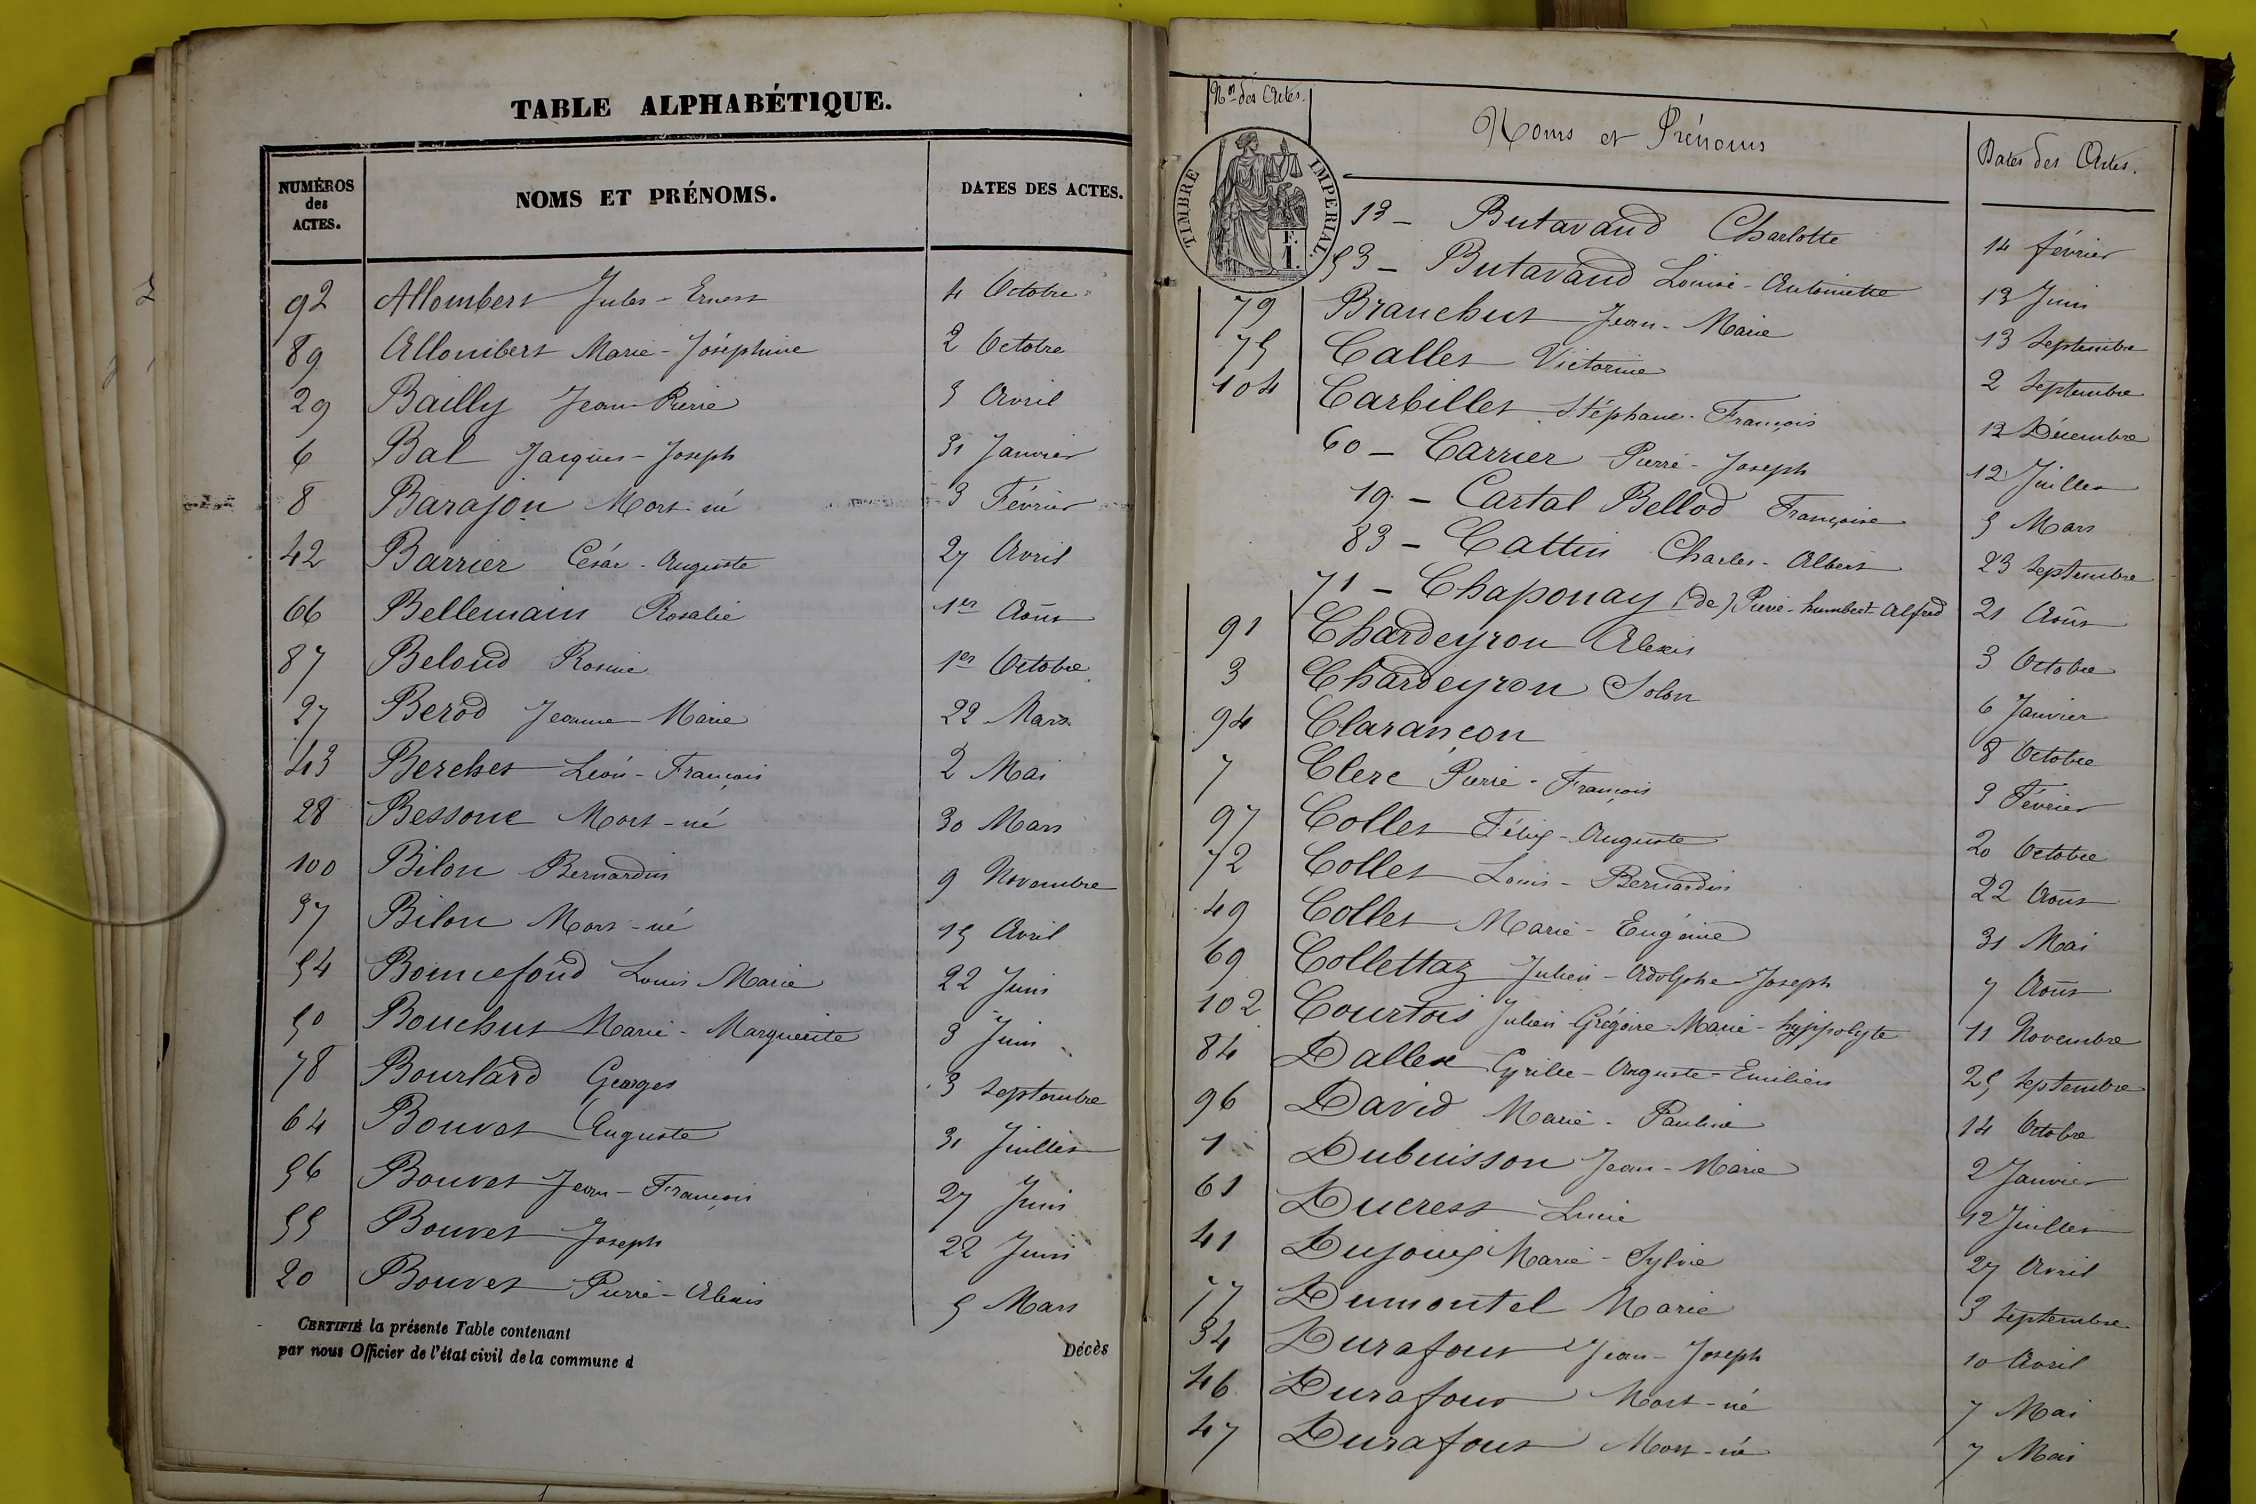 TABLE ALPHABÉTIQUE.
NUMÉROS des ACTES. NOMS ET PRÉNOMS. DATES DES ACTES.
92 Allombert Jules-Ernest 4 Octobre
89 Allombert Marie-Joséphine 2 Octobre
29 Bailly Jean-Pierre 3 Avril
6 Bal Jacques-Joseph 31 Janvier
8 Barajon Mort-né 3 Février
42 Barrier César-Auguste 27 Avril
66 Bellemain Rosalie 1er Août
87 Beloud Rosine 1er Octobre
27 Berod Jeanne-Marie 22 Mars
43 Berchet Léon-François 2 Mai
28 Bessone Mort-né 30 Mars
100 Bilon Bernardin 9 Novembre
37 Bilon Mort-né 15 Avril
54 Bonnefond Louis Marie 22 Juin
50 Bouchut Marie-Marguerite 3 Juin
78 Bourlard Georges 3 Septembre
64 Bouvet Auguste 31 Juillet
56 Bouvet Jean-François 27 Juin
55 Bouvet Joseph 22 Juin
20 Bouvet Pierre-Alexis 5 Mars
CERTIFIÉ la présente Table contenant Décès
par nous Officier de l'état civil de la commune d
Nos des Actes. Noms et Prénoms Dates des Actes.
TIMBRE IMPERIAL.
F.
1.
13 - Butavaud Charlotte 14 février
53 - Butavaud Louise-Antoinette 13 Juin
79 Branchut Jean-Marie 13 Septembre
75 Callet Victorine 2 Septembre
104 Carbillet Stéphane-François 12 Décembre
60 - Carrier Pierre-Joseph 12 Juillet
19 - Cartal Bellod Françoise 5 Mars
83 - Cattin Charles-Albert 23 Septembre
71 - Chaponay (de) Pierre-humbert-Alfred 21 Août
91 Chardeyron Alexis 3 Octobre
3 Chardeyron Solon 6 Janvier
94 Clarançon 8 Octobre
7 Clerc Pierre-François 3 Février
97 Collet Félix-Auguste 20 Octobre
72 Collet Louis-Bernardin 22 Août
49 Collet Marie-Eugénie 31 Mai
69 Collettaz Julien-Adolphe-Joseph 7 Août
102 Courtois Julien Grégoire-Marie-hyppolyte 11 Novembre
84 Dallex Cyrille-Auguste-Emilien 25 Septembre
96 David Marie-Pauline 14 Octobre
1 Dubuisson Jean-Marie 2 Janvier
61 Ducrest Lucie 12 Juillet
41 Dujoux Marie-Sylvie 27 Avril
77 Dumontel Marie 3 Septembre
34 Durafour Jean-Joseph 10 Avril
46 Durafour Mort-né 7 Mai
47 Durafour Mort-né 7 Mai